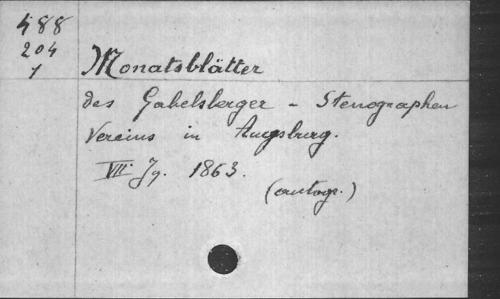 488
204
1
Monatsblätter
des Gabelsberger - Stenographen
Vereins in Augsburg.
VII. Jg. 1863.
(autogr.)